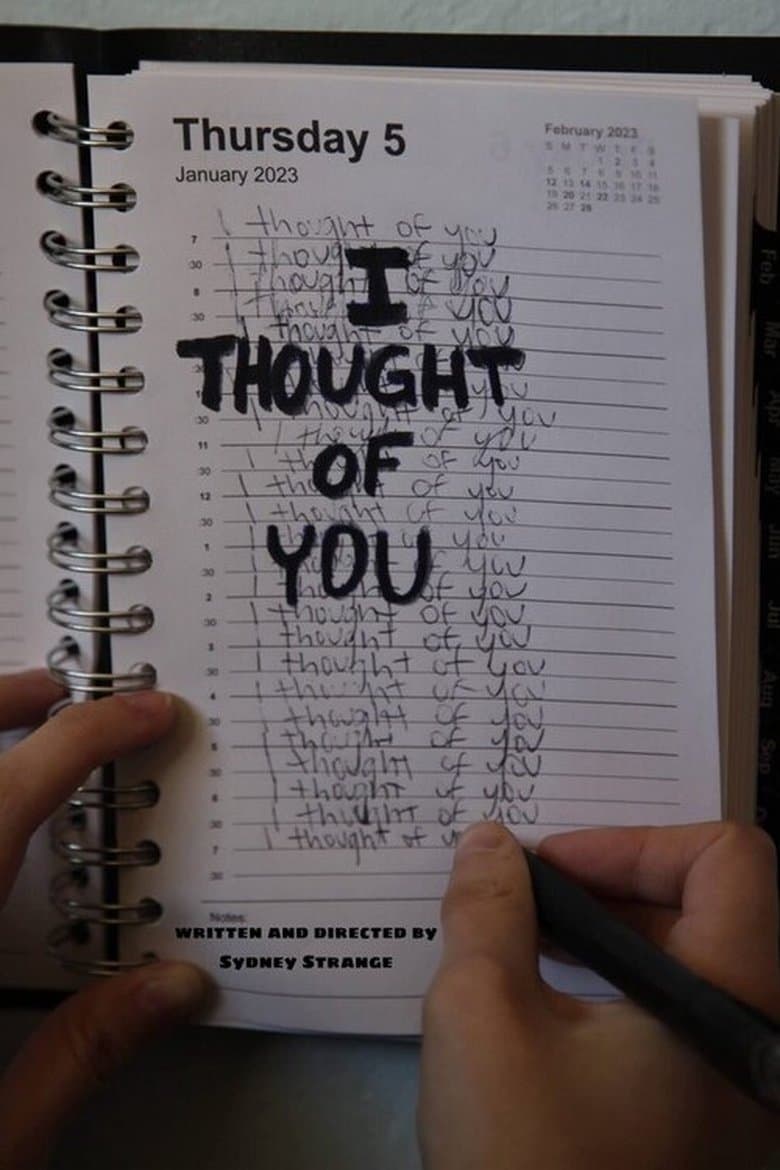 Thursday 5
January 2023
February 2023
S M T W T F S
1 2 3 4
5 6 7 8 9 10 11
12 13 14 15 16 17 18
19 20 21 22 23 24 25
26 27 28
I thought of you
7 I thought of you
30 I thought of you
8 I thought of you
30 I thought of you
you
30 I thought of you
I thought of you
11 I of you
30 I of you
12 I thought of you
30 I of you
1 I you
30 I of you
2 I of you
30 I thought of you
I thought of you
3 I thought of you
30 I thought of you
4 I thought of you
30 I thought of you
5 I thought of you
30 I thought of you
6 I thought of you
30 I thought of
7
30
I
THOUGHT
OF
YOU
Notes:
WRITTEN AND DIRECTED BY
SYDNEY STRANGE
Feb
Mar
Aug
Sep